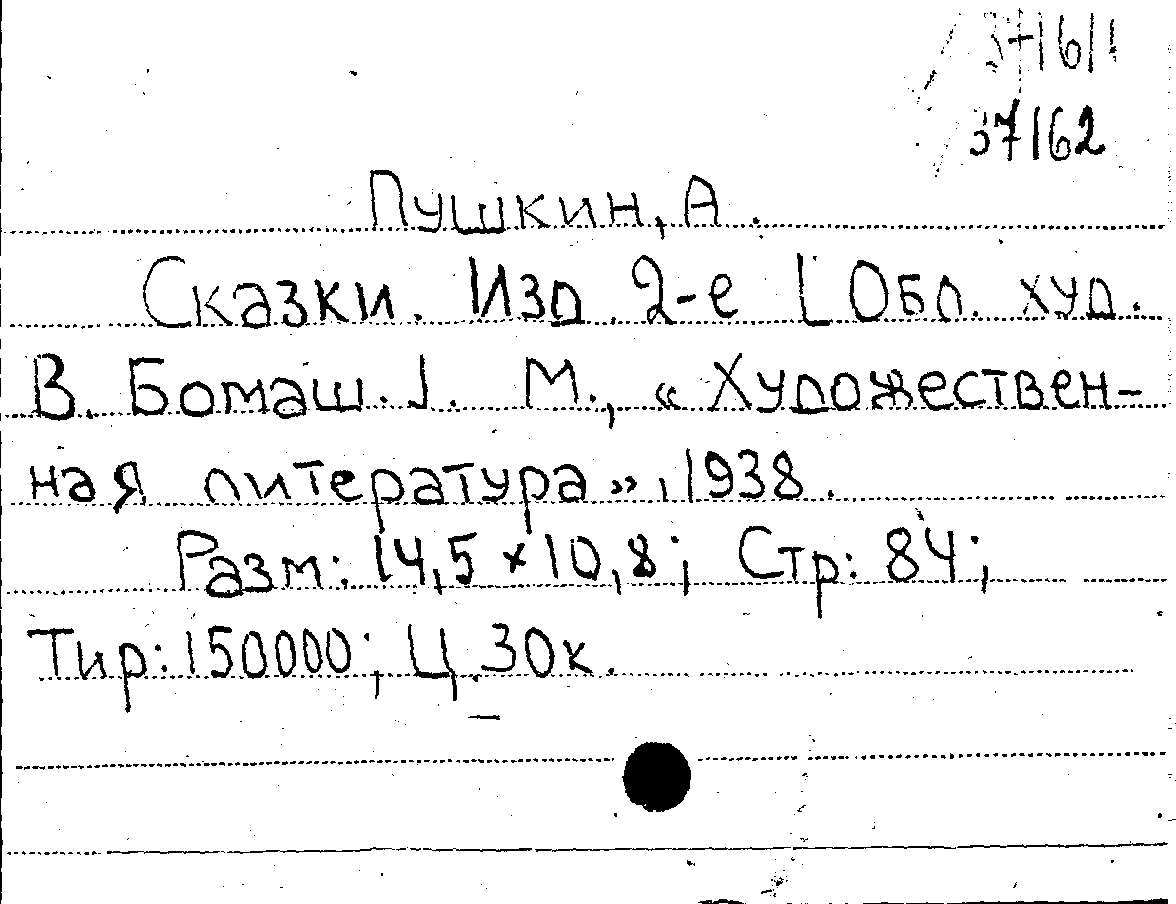 37162
Пушкин, А.
Сказки. Изд. 2-е [Обл. худ.
В. Бомаш.]. М., «Художествен-
ная литература», 1938.
Разм: 14,5 × 10,8; Стр: 84;
Тир: 150000; Ц. 30к.